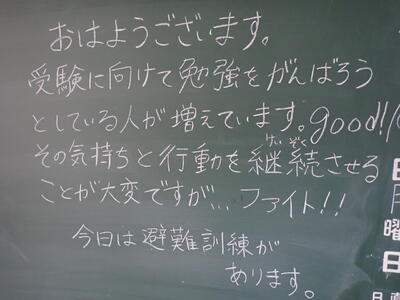 おはようございます。
受験に向けて勉強をがんばろう
としている人が増えています。good!!
けい ぞく
その気持ちと行動を継続させる
ことが大変ですが… ファイト!!
今日は避難訓練が
あります。
月
曜
日
日直